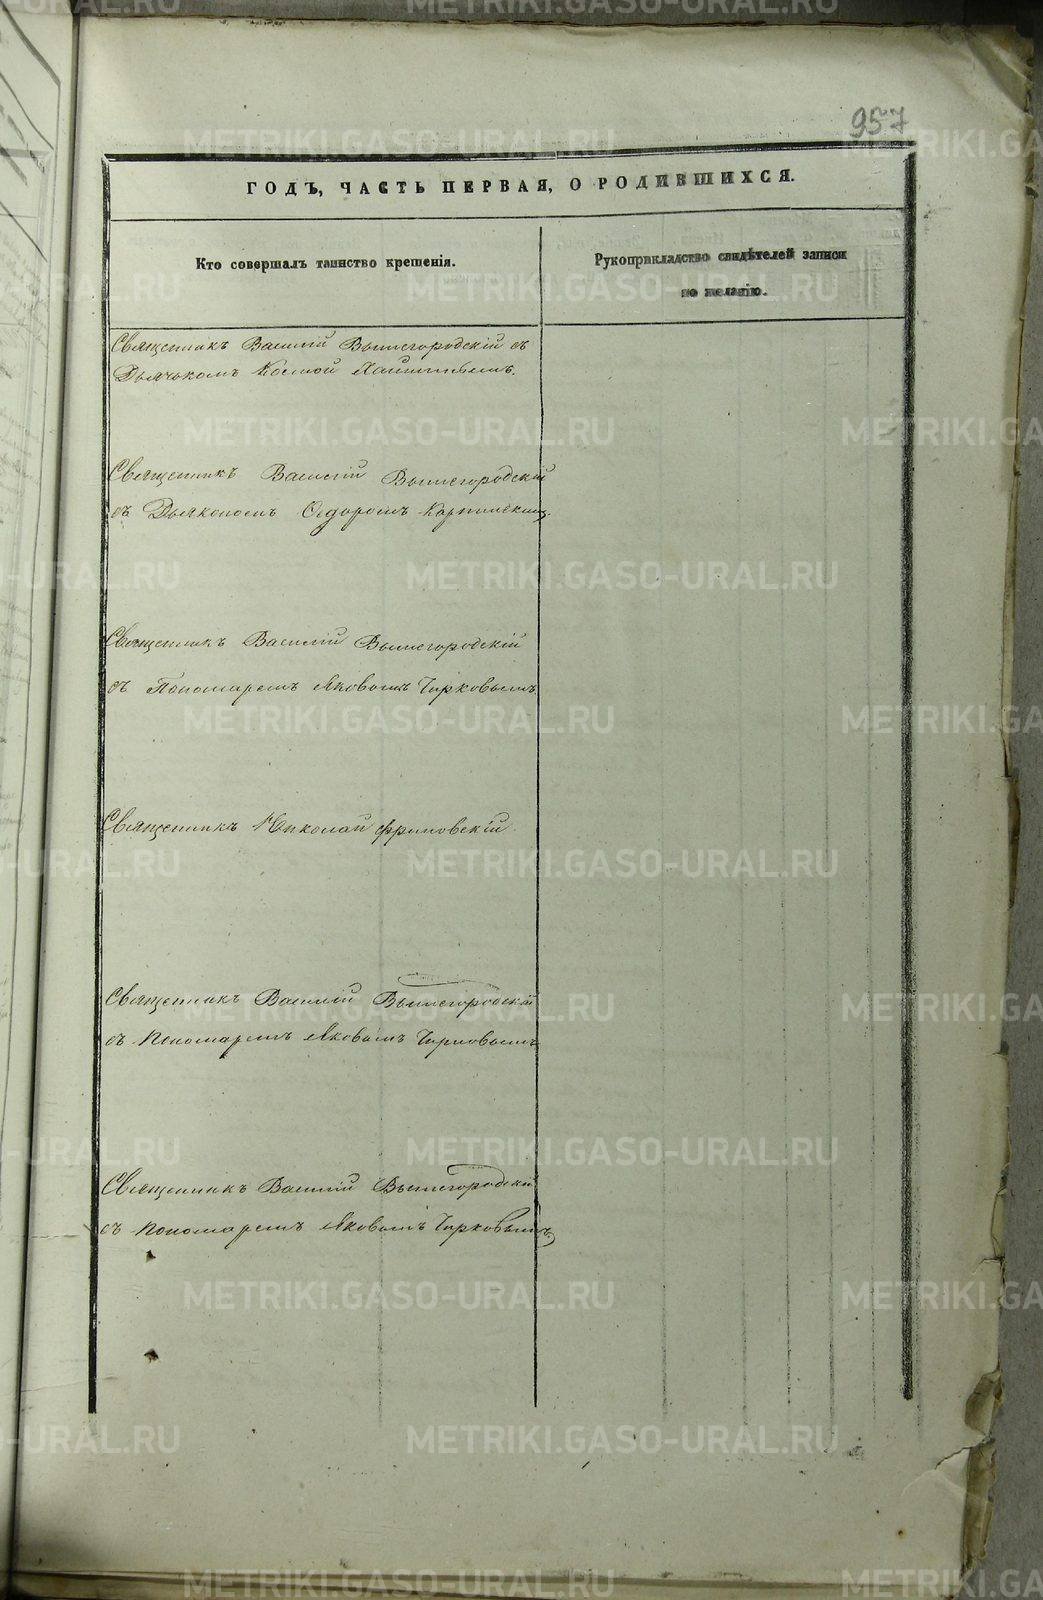 957
ГОДЪ, ЧАСТЬ ПЕРВАЯ, О РОДИВШИХСЯ.
Кто совершалъ таинство крещенія.
Рукоприкладство свидѣтелей записи
по желанію.
Священникъ Василій Вышегородскій съ
Дьячькомъ Космой
Священникъ Василій Вышегородскій
съ Дьякономъ Ѳедоромъ Карпинскимъ.
Священникъ Василій Вышегородскій
съ Пономаремъ Яковомъ Чирковымъ
Священникъ Николай Фриновскій
Священникъ Василій Вышегородскій
съ Пономаремъ Яковомъ Чирковымъ
Священникъ Василій Вышегородскій
съ Пономаремъ Яковомъ Чирковымъ
METRIKI.GASO-URAL.RU